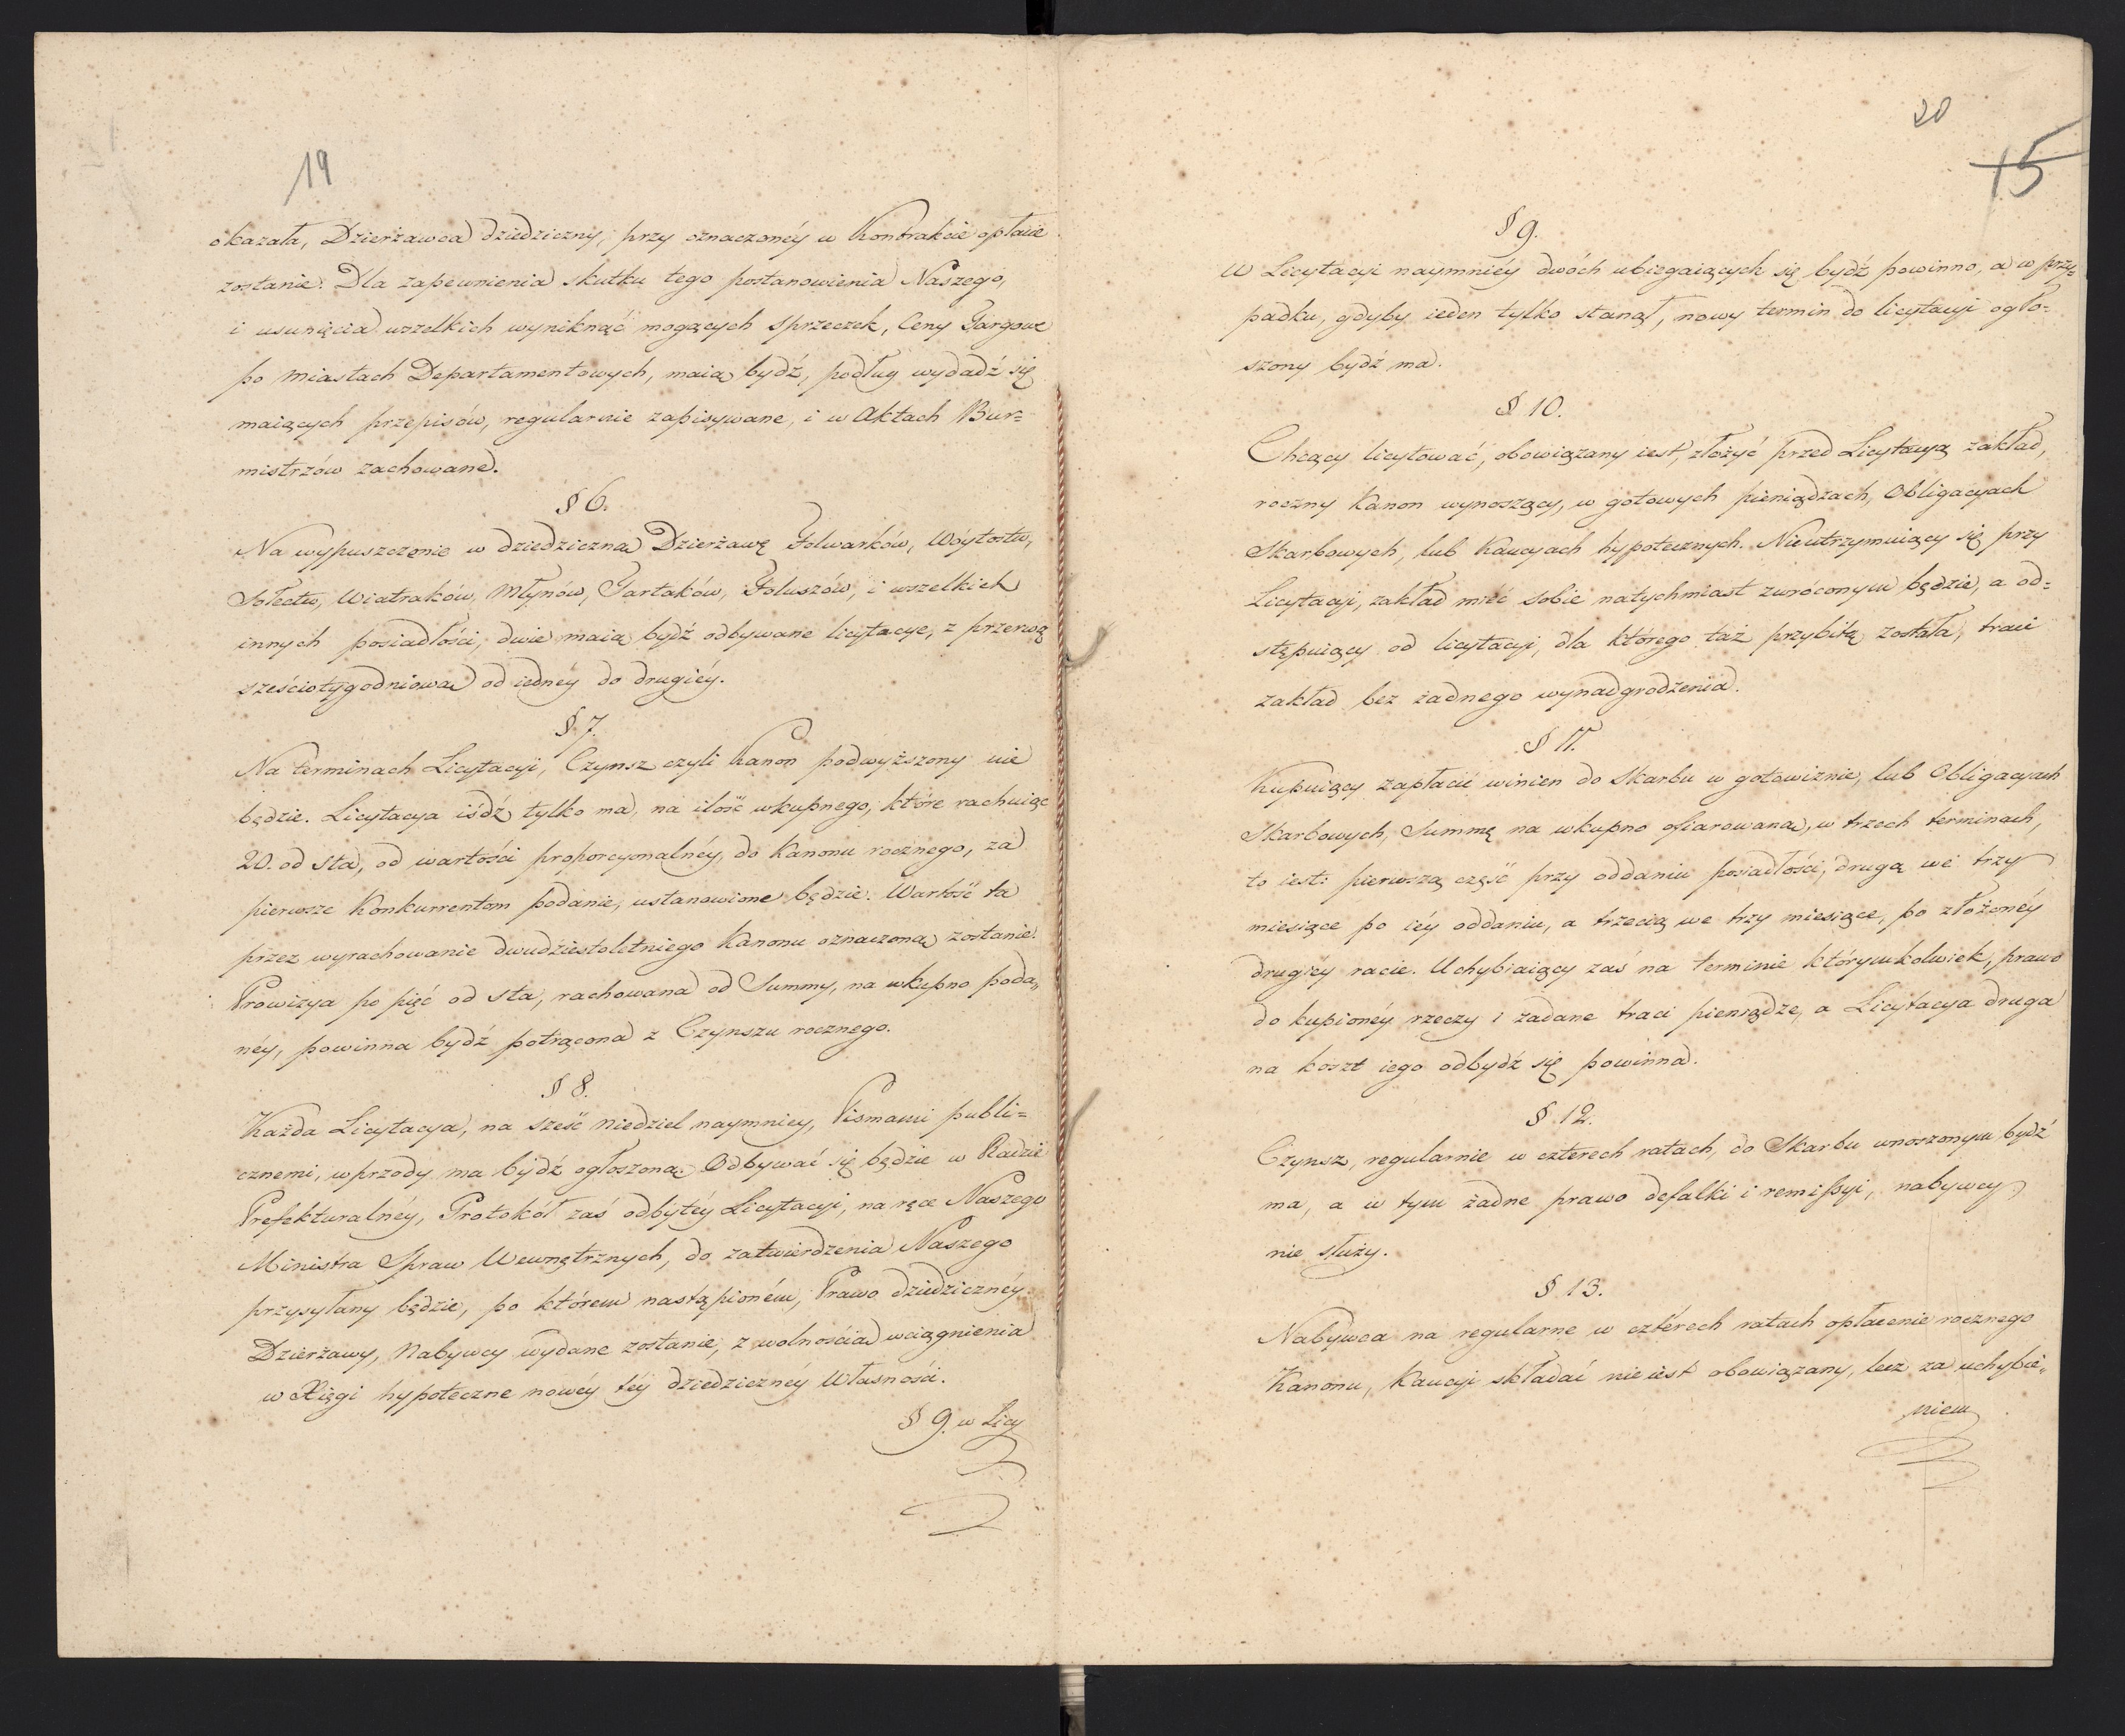 19
okazała, Dzierżawca dziedziczny, przy oznaczonéy w Kontrakcie opłacie
zostanie. Dla zapewnienia skutku tego postanowienia Naszego,
i usunięcia wszelkich wyniknąć mogących sprzeczek, Ceny Targowe
po miastach Departamentowych, maią bydź, podług wydadź się
maiących przepisów, regularnie zapisywane, i w Aktach Bur=
mistrzów zachowane.
§ 6.
Na wypuszczenie w dziedziczną Dzierżawę Folwarków, Wóytostw,
Sołectw, Wiatraków, Młynów, Tartaków, Foluszów, i wszelkich
innych posiadłości, dwie maią bydź odbywane licytacye, z przerwą
sześciotygodniową od iedney do drugiéy.
§ 7.
Na terminach Licytacyi, Czynsz czyli Kanon podwyższony nie
będzie. Licytacya iśdź tylko ma, na ilość wkupnego, które rachuiąc
20. od sta, od wartości proporcyonalnéy, do Kanonu rocznego, za
pierwsze Konkurrentom podanie, ustanowione będzie. Wartość ta
przez wyrachowanie dwudziestoletniego Kanonu oznaczoną zostanie.
Prowizya po pięć od sta, rachowana od Summy, na wkupno poda„
néy, powinna bydź potrącona z Czynszu rocznego.
§ 8.
Każda Licytacya, na sześć niedziel naymniey, Pismami publi=
cznemi, wprzody ma bydź ogłoszoną. Odbywać się będzie w Radzie
Prefekturalnéy, Protokół zaś odbytéy Licytacyi, na ręce Naszego
Ministra Spraw Wewnętrznych, do zatwierdzenia Naszego
przysyłany będzie, po którem nastąpioném, Prawo dziedzicznéy
Dzierżawy, Nabywcy wydane zostanie, z wolnością wciągnienia
w Xięgi hypoteczne nowéy téy dziedzicznéy Własności.
§ 9. w Licy
20
15
§ 9.
W Licytacyi naymniéy dwóch ubiegaiących się bydź powinno, a w przy=
padku, gdyby ieden tylko stanął, nowy termin do licytacyi ogło=
szony bydź ma.
§ 10.
Chcący licytować, obowiązany iest, złożyć przed Licytacyą zakład,
roczny Kanon wynoszący, w gotowych pieniądzach, Obligacyach
Skarbowych, lub Kaucyach hypotecznych. Nieutrzymuiący się przy
Licytacyi, zakład mieć sobie natychmiast zwróconym będzie, a od=
stępuiący od licytacyi, dla którego taż przybitą została, traci
zakład bez żadnego wynadgrodzenia.
§ 11.
Kupuiący zapłacić winien do Skarbu w gotowiznie, lub Obligacyach
Skarbowych, Summę na wkupno ofiarowaną, w trzech terminach,
to iest: pierwszą część przy oddaniu posiadłości, drugą we trzy
miesiące po iéy oddaniu, a trzecią we trzy miesiące, po złożonéy
drugiey racie. Uchybiaiący zaś na terminie którymkolwiek, prawo
do kupionéy rzeczy i zadane traci pieniądze, a Licytacya druga
na koszt iego odbydź się powinna.
§ 12.
Czynsz, regularnie w czterech ratach, do Skarbu wnoszonym bydź
ma, a w tym żadne prawo defalki i remissyi, nabywcy
nie służy.
§ 13.
Nabywca na regularne w czterech ratach opłacenie rocznego
Kanonu, Kaucyi składać nie iest obowiązany, lecz za uchybie„
niem